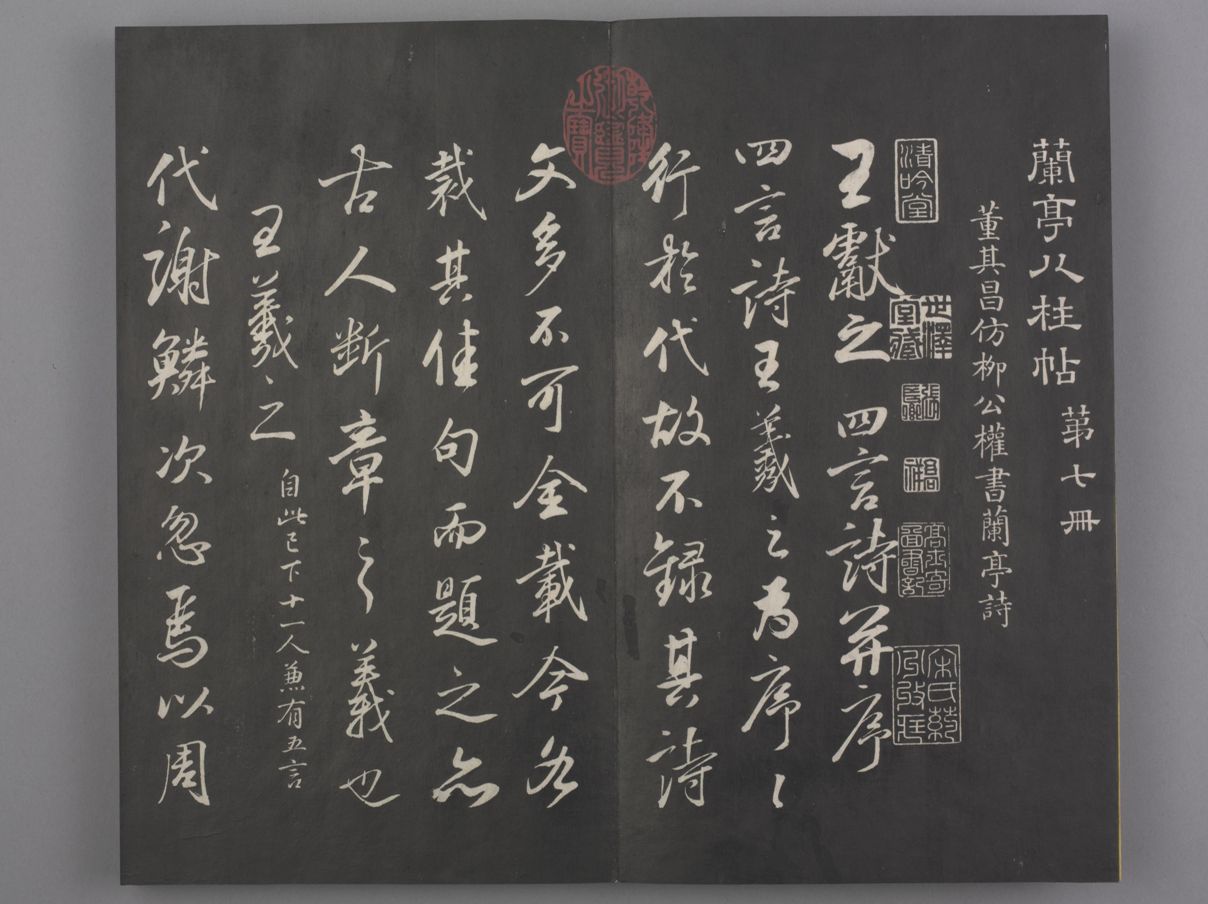 蘭亭八柱帖 苐七冊
董其昌仿柳公權書蘭亭詩
清吟堂
高士奇圖書記
王獻之四言詩并序
四言詩王羲之為序〻
行於代故不録其詩
乾隆御覽之寶
文多不可全載今各
裁其佳句而題之亦
古人断章之義也
王羲之 自此已下十一人兼有五言
代謝鱗次忽焉以周